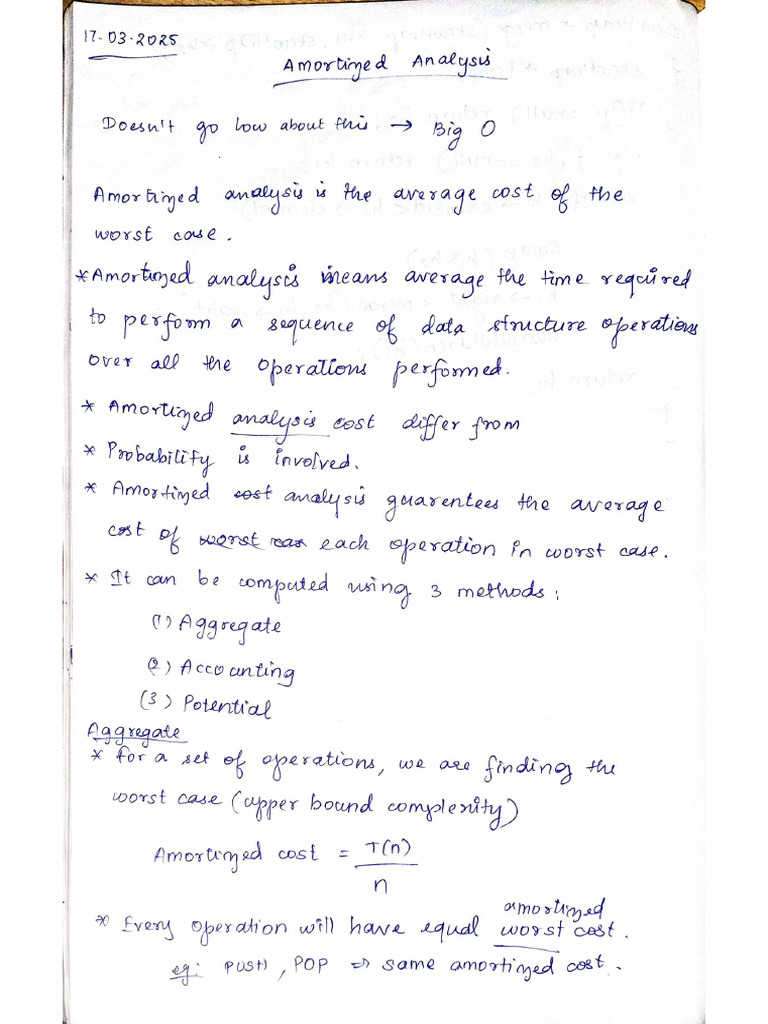 17-03-2025
Amortized Analysis
Doesn't go low about this → Big O
Amortized analysis is the average cost of the
worst case.
* Amortized analysis means average the time required
to perform a sequence of data structure operations
over all the operations performed.
* Amortized analysis cost differ from
* Probability is involved.
* Amortized cost analysis guarentees the average
cost of worst cas each operation in worst case.
* It can be computed using 3 methods:
(1) Aggregate
(2) Accounting
(3) Potential
Aggregate
* for a set of operations, we are finding the
worst case (upper bound complexity)
Amortized cost = T(n)
n
amortized
* Every operation will have equal worst cost.
eg: PUSH, POP ⇒ same amortized cost.